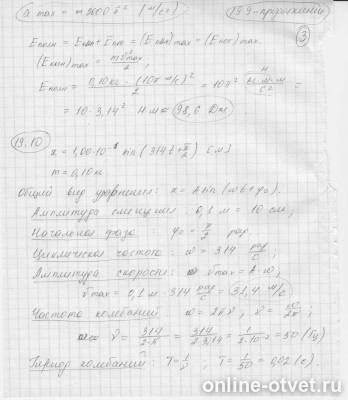 a max = ≈ 2000 π² (м/с²) 19.9 - продолжение
③
Eполн = Eкин + Eпот = (Eкин) max = (Eпот) max.
(Eкин) max = mv²max / 2,
Eполн = 0,10 кг · (10π м/с)² / 2 =
= 10 · 3,14² Н·м = 98,6 Дж
19.10
x = 1,00·10⁻¹ sin (314t + π/2) [м]
m = 0,10 кг
Общий вид уравнения: x = A sin (ωt + φ₀).
Амплитуда смещения: 0,1 м = 10 см;
Начальная фаза: φ₀ = π/2 рад.
Циклическая частота: ω = 314 рад/с;
Амплитуда скорости: v max = A·ω;
v max = 0,1 м · 314 рад/с = 31,4 м/с
Частота колебаний: ω = 2πν, ν = ω/2π,
ν = 314/2·π = 314/2·3,14 = 1/2·10⁻² = 50 (Гц)
Период колебаний: T = 1/ν; T = 1/50 = 0,02 (с).
online-otvet.ru